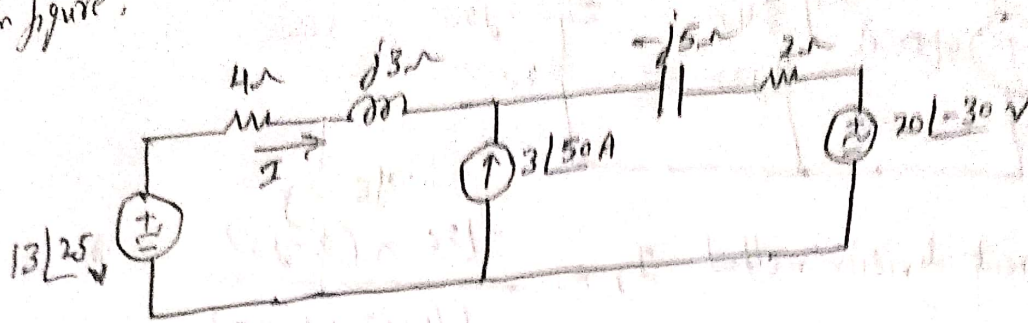 n figure.
4Ω
j3Ω
-j5Ω
2Ω
I
3∠50 A
20∠-30 V
13∠25 V